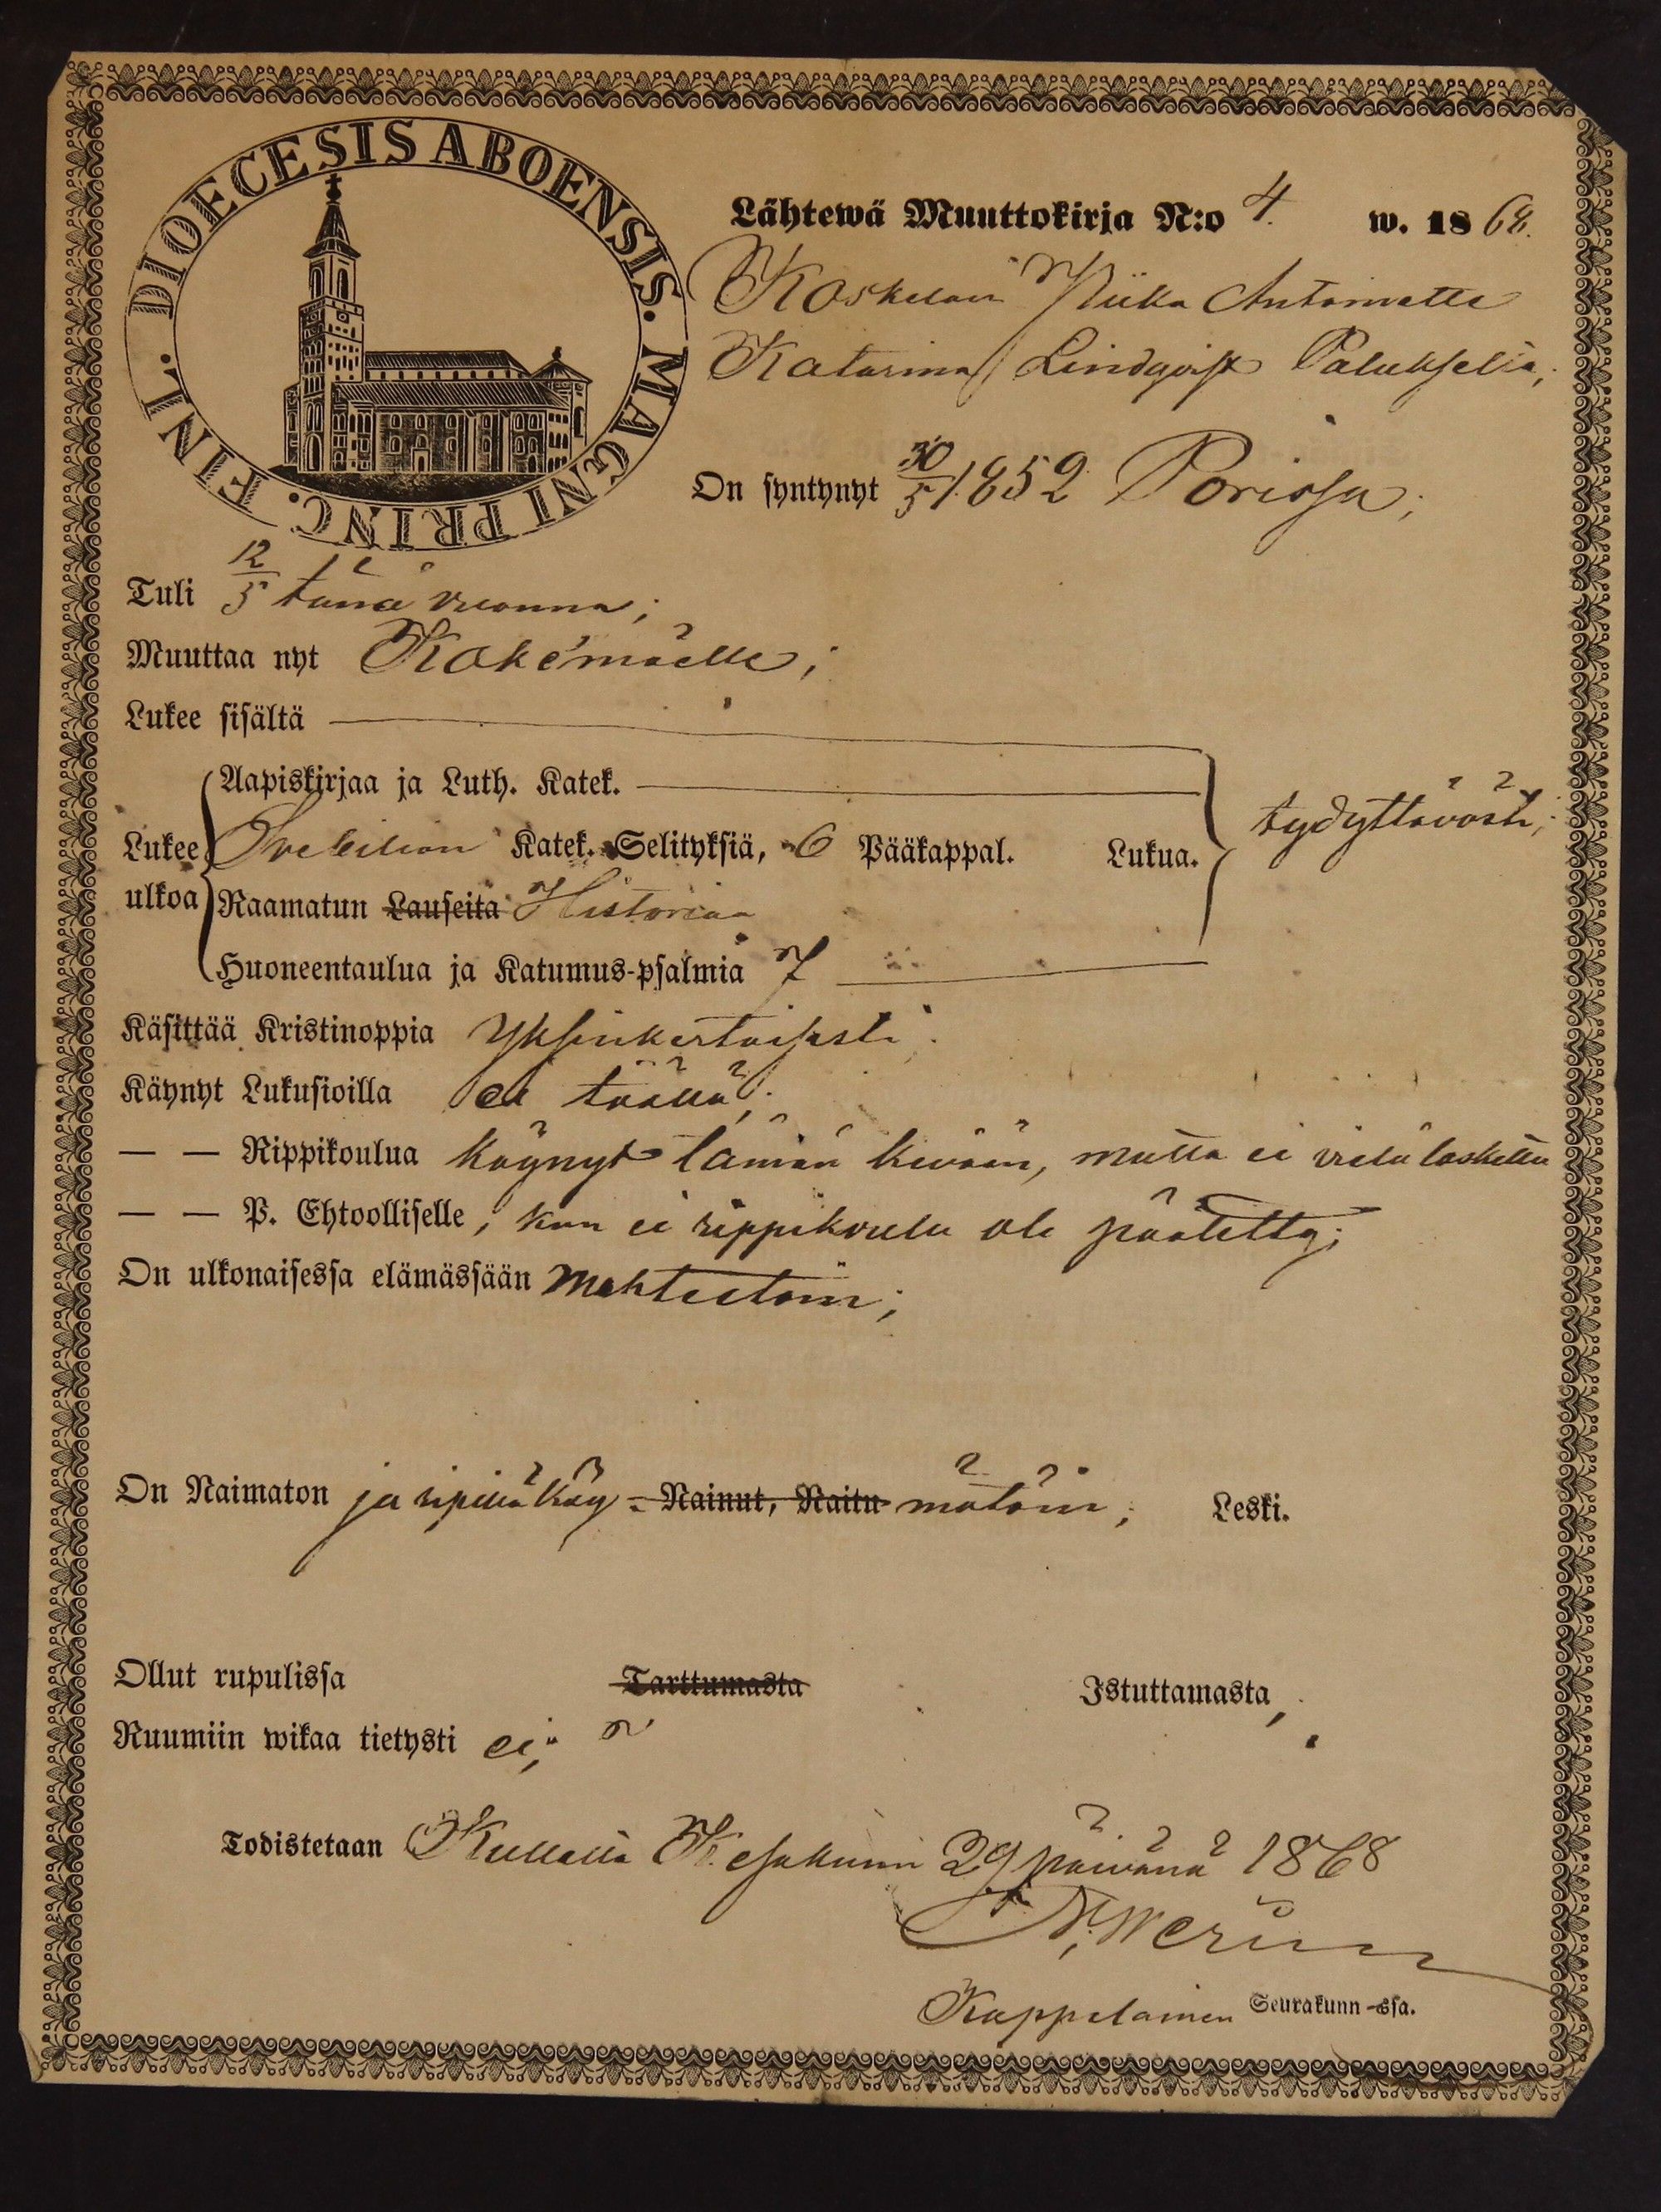 DIOECESIS ABOENSIS. MAGNI PRINC. FINL.
Lähtewä Muuttokirja N:o 4. w. 1868.
Koskelan Piika Antoinette
Katarina Lindqvist Palukselta;
On syntynyt 30/5 1852 Porissa;
Tuli 12/5 tänä vuonna;
Muuttaa nyt Kokemäelle;
Lukee sisältä
Aapiskirjaa ja Luth. Katek.
Lukee ulkoa Svebilion Katek. Selityksiä, 6 Pääkappal. Lukua. tydyttävästi;
Raamatun Lauseita Historiaa
Huoneentaulua ja Katumus-psalmia 7
Käsittää Kristinoppia yksinkertaisesti;
Käynyt Lukusioilla ei täällä;
— — Rippikoulua käynyt tämän kevään, mutta ei vielä laskettu
— — P. Ehtoolliselle, kun ei rippikoulu ole päätetty;
On ulkonaisessa elämässään mahteetoin;
On Naimaton ja ripillä käy- Nainut, Naitu mätöin; Leski.
Ollut rupulissa Tarttumasta Istuttamasta,
Ruumiin wikaa tietysti ei;
Todistetaan Kullalla Kesäkuun 29 päivänä 1868
Kappelainen Seurakunn-ssa.